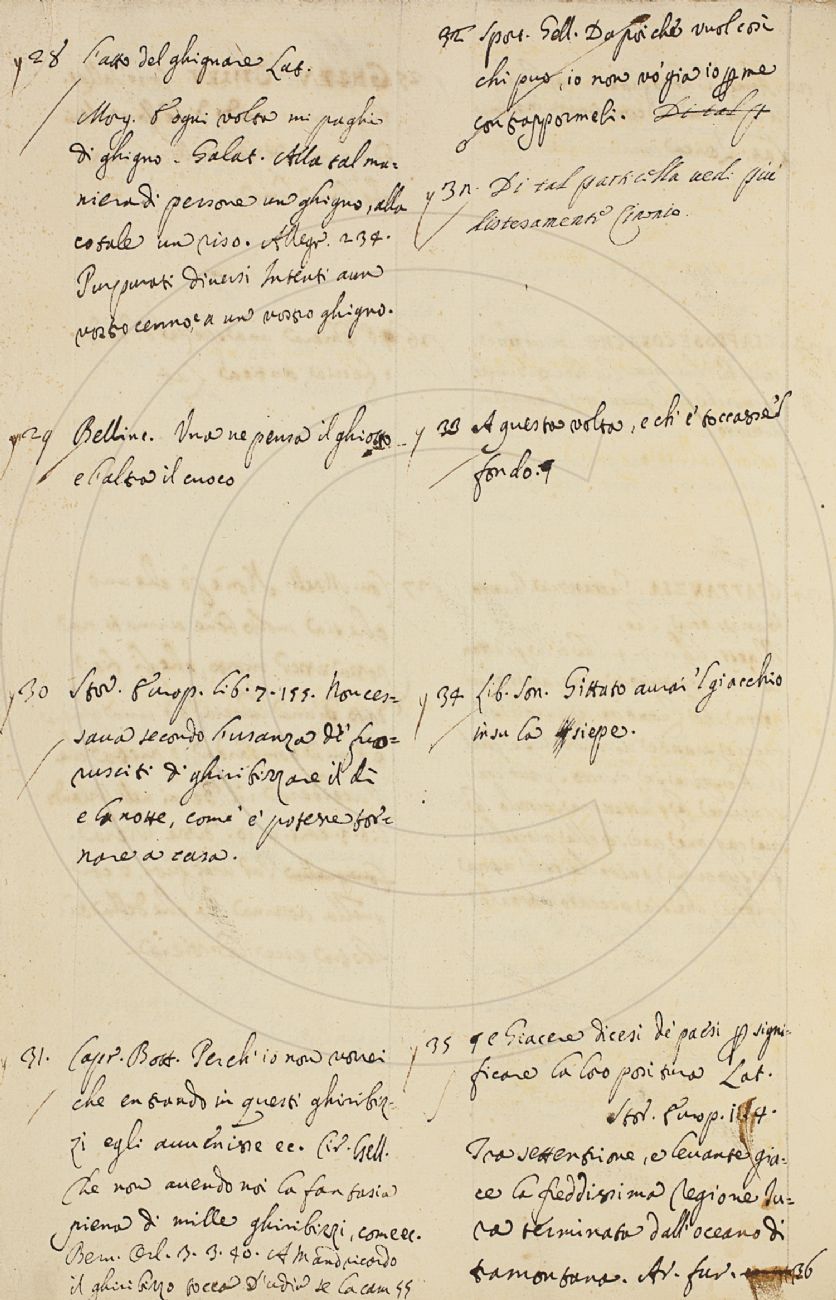 28 L'atto del ghignare Lat.
Morg. E ogni volta mi paghi
di ghigno. Galat. Alla tal ma=
niera di persone un ghigno, alla
cotale un riso. Allegr. 234.
Purpurati diversi Intenti a un
vostro cenno, e a un vostro ghigno.
29 Bellinc. Una ne pensa il ghiotto
e l'altra il cuoco
30 Stor. Europ. lib. 7. 155. Non ces=
sava secondo l'usanza de' fuo=
rusciti di ghiribizzare il dì
e la notte, com'e' potesse tor=
nare a casa.
31. Capr. Bott. Perch'io non vorrei
che entrando in questi ghiribiz=
zi egli avvenisse ec. Cir. Gell.
Che non avendo noi la fantasia
piena di mille ghiribizzi, come ec.
Bern. Orl. 3. 3. 40. A Mandricardo
il ghiribizzo tocca D'udir se la cam
32 Sport. Gell. Da poi che vuol così
chi può, io non vo' già io per me
contrappormeli. Di tal p
32. Di tal particella vedi più
distesamente Cinonio.
33 A questa volta, e ch'e' toccasse 'l
fondo.
34 Lib. Son. Gittato avrai 'l giacchio
in su la siepe.
35 e Giacere dicesi de' paesi per signi=
ficare la loro positura Lat.
Stor. Europ. 1. 4.
Tra settentrione, e levante gia=
ce la freddissima regione Iu=
ra terminata dall'oceano di
tramontana. Ar. Fur. 36